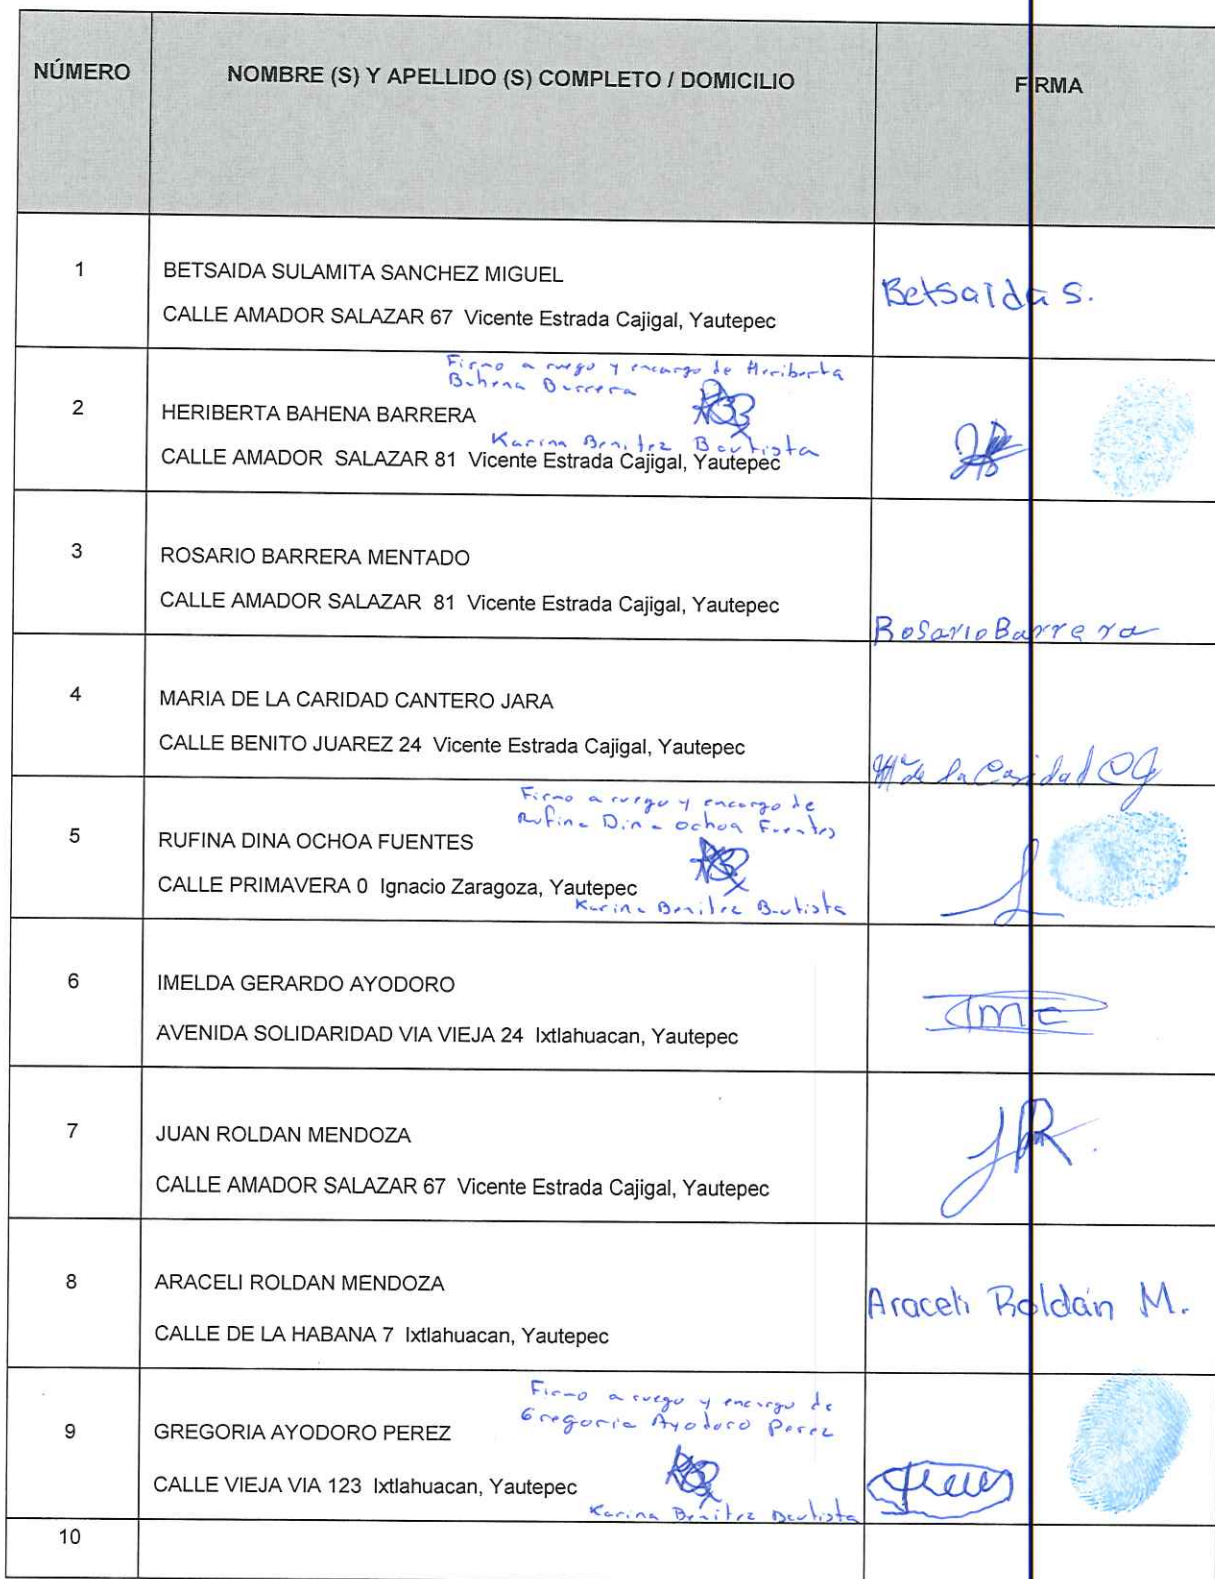 NÚMERO
NOMBRE (S) Y APELLIDO (S) COMPLETO / DOMICILIO
FIRMA
1
BETSAIDA SULAMITA SANCHEZ MIGUEL
CALLE AMADOR SALAZAR 67 Vicente Estrada Cajigal, Yautepec
Betsaida S.
2
Firmo a ruego y encargo de Heriberta
Bahena Barrera
HERIBERTA BAHENA BARRERA
Karina Benitez Bautista
CALLE AMADOR SALAZAR 81 Vicente Estrada Cajigal, Yautepec
3
ROSARIO BARRERA MENTADO
CALLE AMADOR SALAZAR 81 Vicente Estrada Cajigal, Yautepec
Rosario Barrera
4
MARIA DE LA CARIDAD CANTERO JARA
CALLE BENITO JUAREZ 24 Vicente Estrada Cajigal, Yautepec
Ma de la Caridad CJ
5
Firmo a ruego y encargo de
Rufina Dina Ochoa Fuentes
RUFINA DINA OCHOA FUENTES
CALLE PRIMAVERA 0 Ignacio Zaragoza, Yautepec
Karina Benitez Bautista
6
IMELDA GERARDO AYODORO
AVENIDA SOLIDARIDAD VIA VIEJA 24 Ixtlahuacan, Yautepec
IME
7
JUAN ROLDAN MENDOZA
CALLE AMADOR SALAZAR 67 Vicente Estrada Cajigal, Yautepec
8
ARACELI ROLDAN MENDOZA
CALLE DE LA HABANA 7 Ixtlahuacan, Yautepec
Araceli Roldán M.
9
Firmo a ruego y encargo de
Gregoria Ayodoro Perez
GREGORIA AYODORO PEREZ
CALLE VIEJA VIA 123 Ixtlahuacan, Yautepec
Karina Benitez Bautista
10